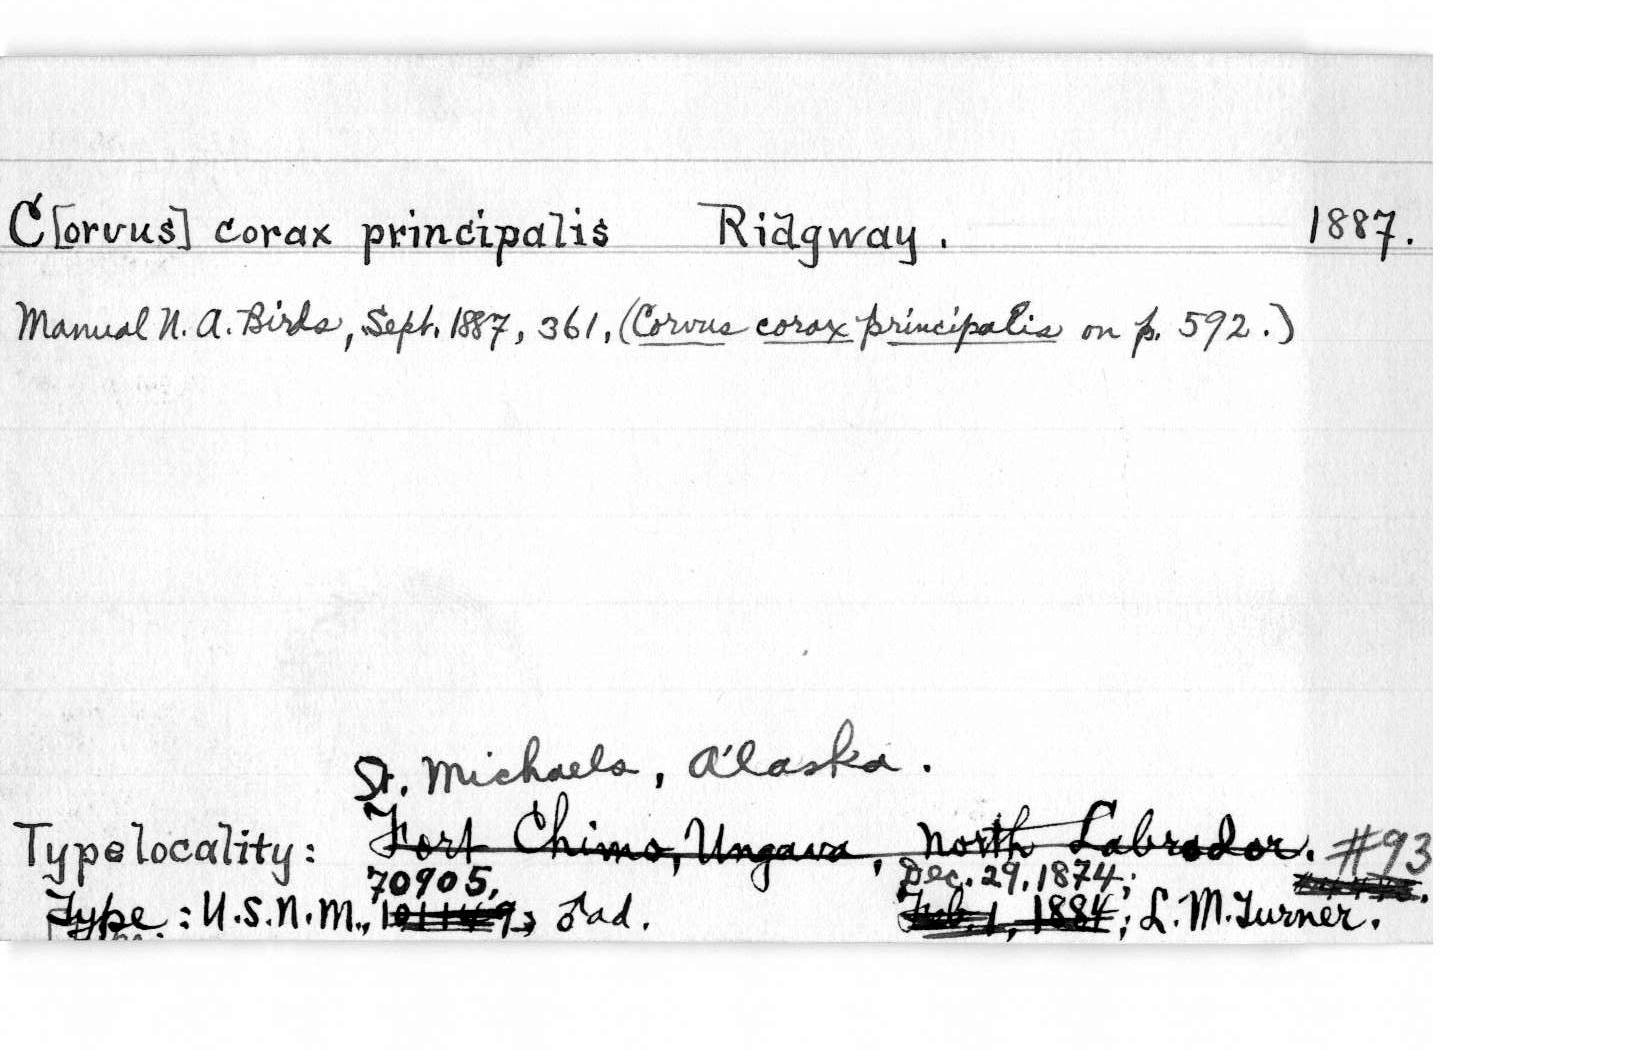 C[orvus] corax principalis Ridgway. 1887.
Manual N. A. Birds, Sept. 1887, 361, (Corvus corax principalis on p. 592.)
St. Michaels, Alaska.
Type locality: Fort Chimo, Ungava, North Labrador. #93
70905, Dec. 29, 1874;
Type: U.S.N.M., ♂ ad. Feb. 1, 1884; L. M. Turner.